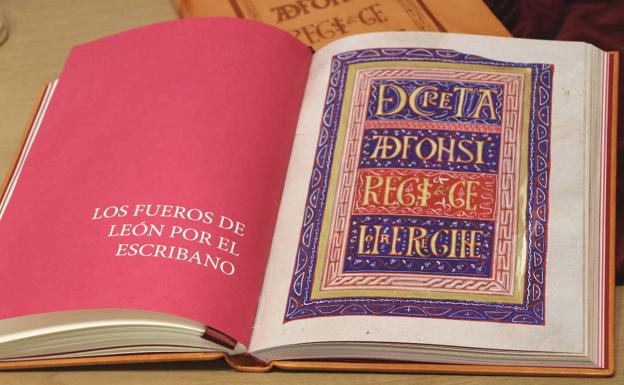 ADFONSI
REGIS & GE
LOS FUEROS DE
LEÓN POR EL
ESCRIBANO
DCRETA
ADFONSI
REGIS & GE